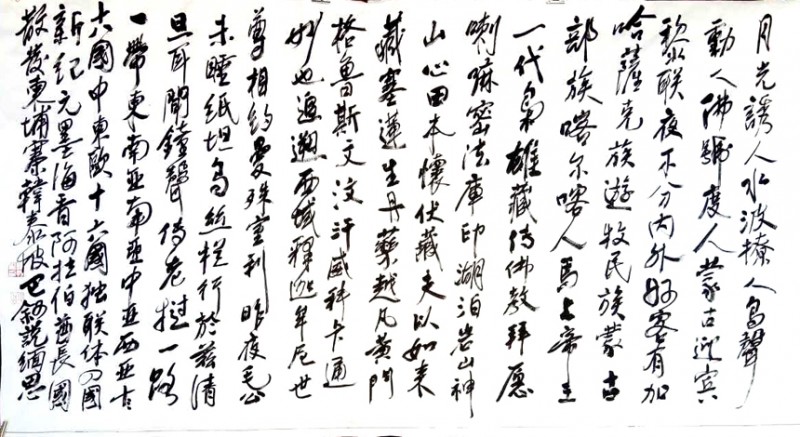 月光誘人水波撩人鳥聲
動人佛號度人蒙古迎賓
黎联夜不分内外好客有加
哈薩克族遊牧民族蒙古
部族喀尔喀人馬上帝王
一代梟雄藏传佛教拜愿
喇嘛密法庫印湖泊岩山神
山心田本懷伏藏夫以如来
藏塞蓮生丹藥越凡黄門
格鲁斯文汶汗威科卡通
妙也追溯西域釋迦牟尼世
尊相約曼殊室利昨夜毛公
未睡纸坦烏丝栏行於兹清
旦耳闻鐘聲传老挝一路
一帶東南亚南亚中亚西亚古
十六國中東歐十六國独联体四國
新纪元墨海香阿拉伯酋長國
散发東埔寨韓泰叙说缅思